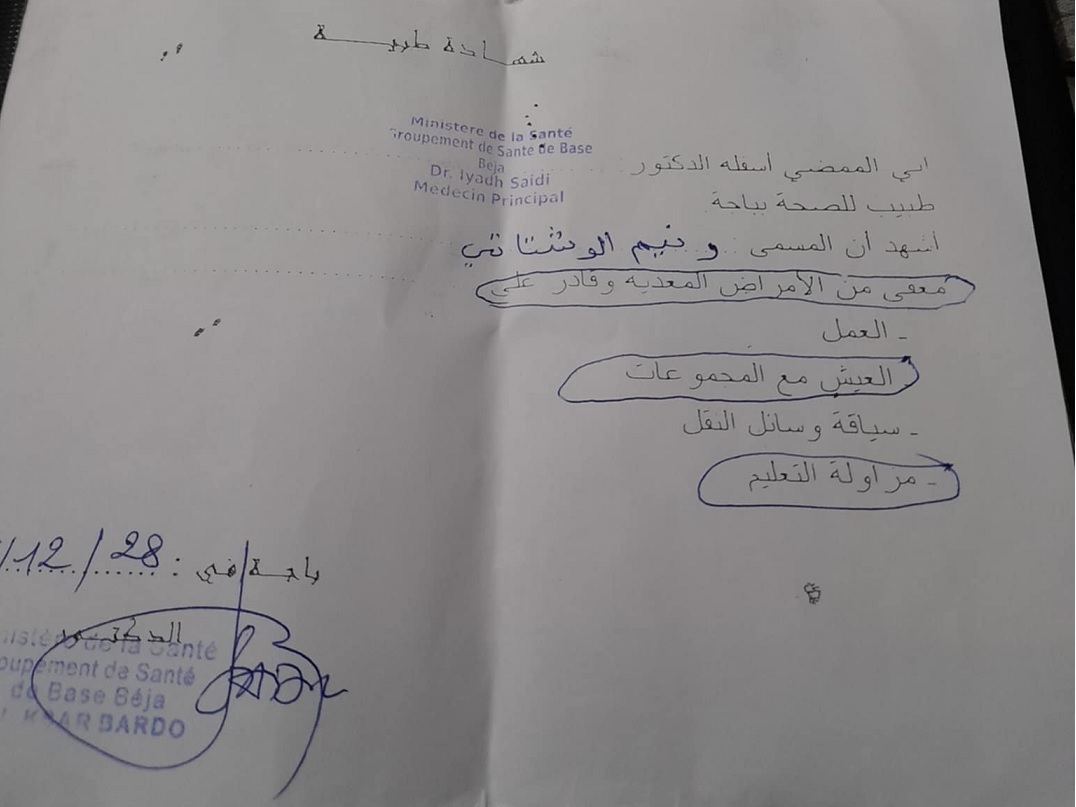 شهادة طبية
Ministere de la Santé
Groupement de Sante de Base
Beja
Dr. Iyadh Saidi
Medecin Principal
إني الممضي أسفله الدكتور
طبيب للصحة بباجة
أشهد أن المسمى : ونيم الوشتاتي
معفى من الأمراض المعدية وقادر على
- العمل
- العيش مع المجموعات
- سياقة وسائل النقل
- مزاولة التعليم
باجة في : 28/12/
الدكتور
nistère de la Santé
oupement de Santé
de Base Béja
KSAR BARDO